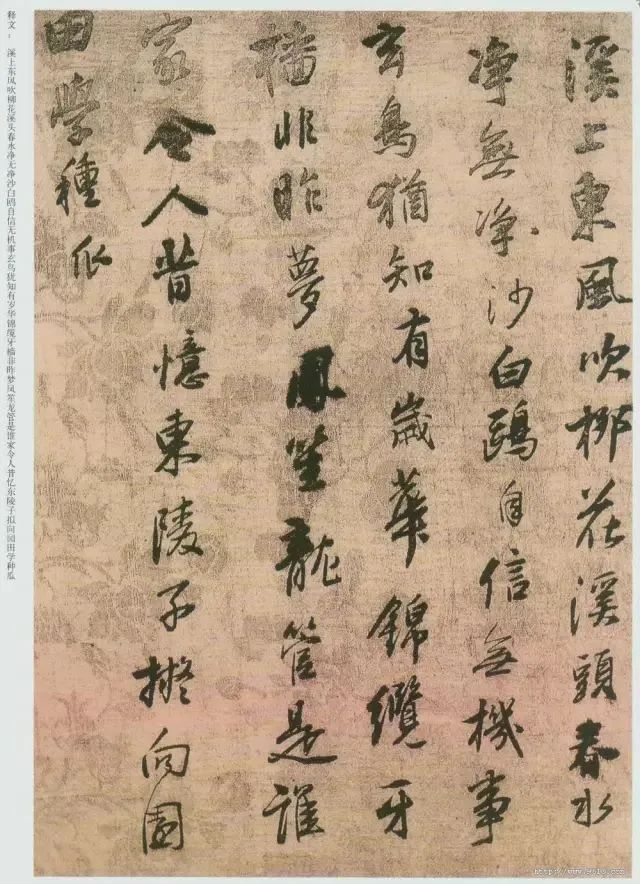 溪上東風吹柳花溪頭春水
净無净沙白鷗自信無機事
玄鳥猶知有歲華錦纜牙
檣非昨夢鳳笙龍管是誰
家令人昔憶東陵子擬向園
田學種瓜
释文： 溪上东风吹柳花溪头春水净无净沙白鸥自信无机事玄鸟犹知有岁华锦缆牙樯非昨梦凤笙龙管是谁家令人昔忆东陵子拟向园田学种瓜
http://www.9610.com